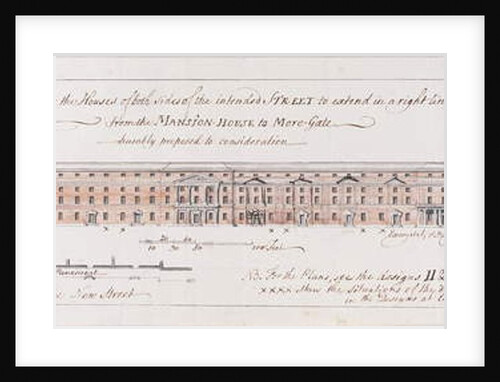 the Houses of both sides of the intended STREET to extend in a right Lin
from the MANSION-HOUSE to More-Gate
humbly proposed to consideration
10 20 30 100 feet
e New Street
NB. For the Plans, see the designs II &
xxxx shew the Situations of the
in the Designs at